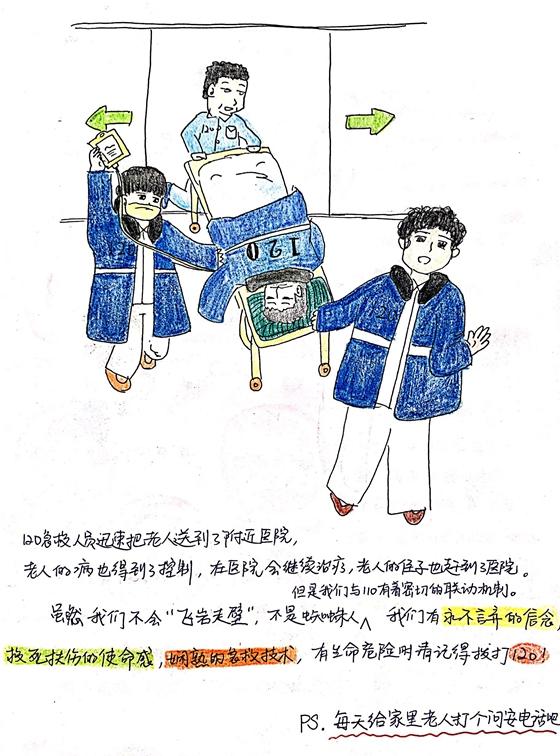 120
120
120
120急救人员迅速把老人送到了附近医院,
老人的病也得到了控制,在医院会继续治疗,老人的侄子也赶到了医院。
但是我们与110有着密切的联动机制。
虽然我们不会“飞岩走壁”,不是蜘蛛人∧ 我们有永不言弃的信念,
救死扶伤的使命感,娴熟的急救技术,有生命危险时请记得拨打120!
PS. 每天给家里老人打个问安电话吧